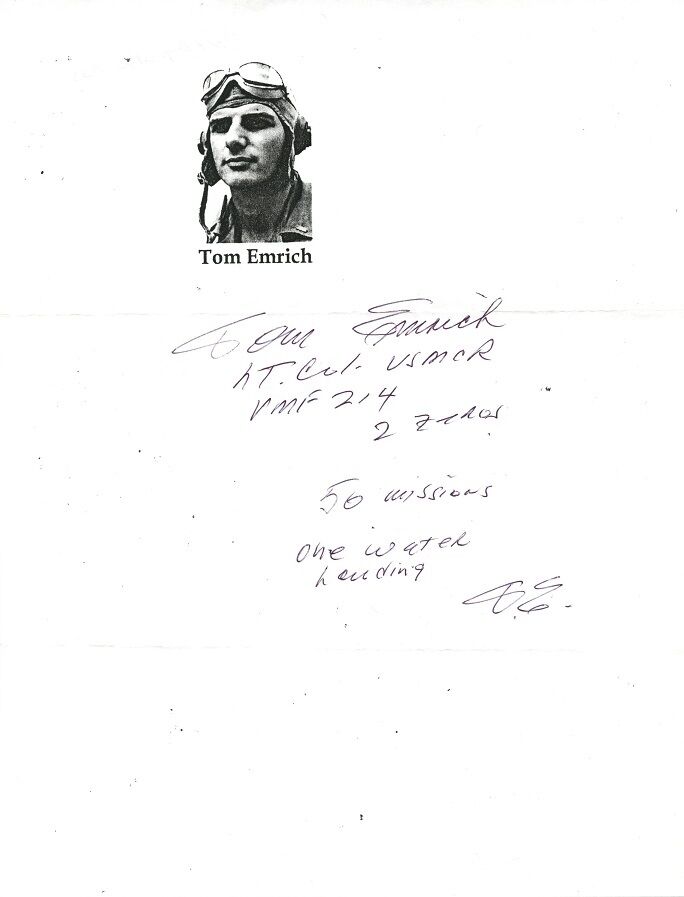 Tom Emrich
Tom Emrich
LT. Col. USMCR
VMF 214
2 Zeros
50 missions
one water
Landing
T.E.